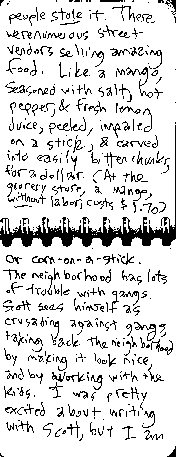 people stole it. There
were numerous street
vendors selling amazing
food. Like a mango,
seasoned with salt, hot
pepper, & fresh lemon
juice, peeled, impaled
on a stick, & carved
into easily bitten chunks,
for a dollar. (At the
grocery store, a mango,
without labor, costs $1.70)
or corn-on-a-stick.
The neighborhood has lots
of trouble with gangs.
Scott sees himself as
crusading against gangs,
taking back the neighborhood
by making it look nice,
and by working with the
kids. I was pretty
excited about writing
with Scott, but I am